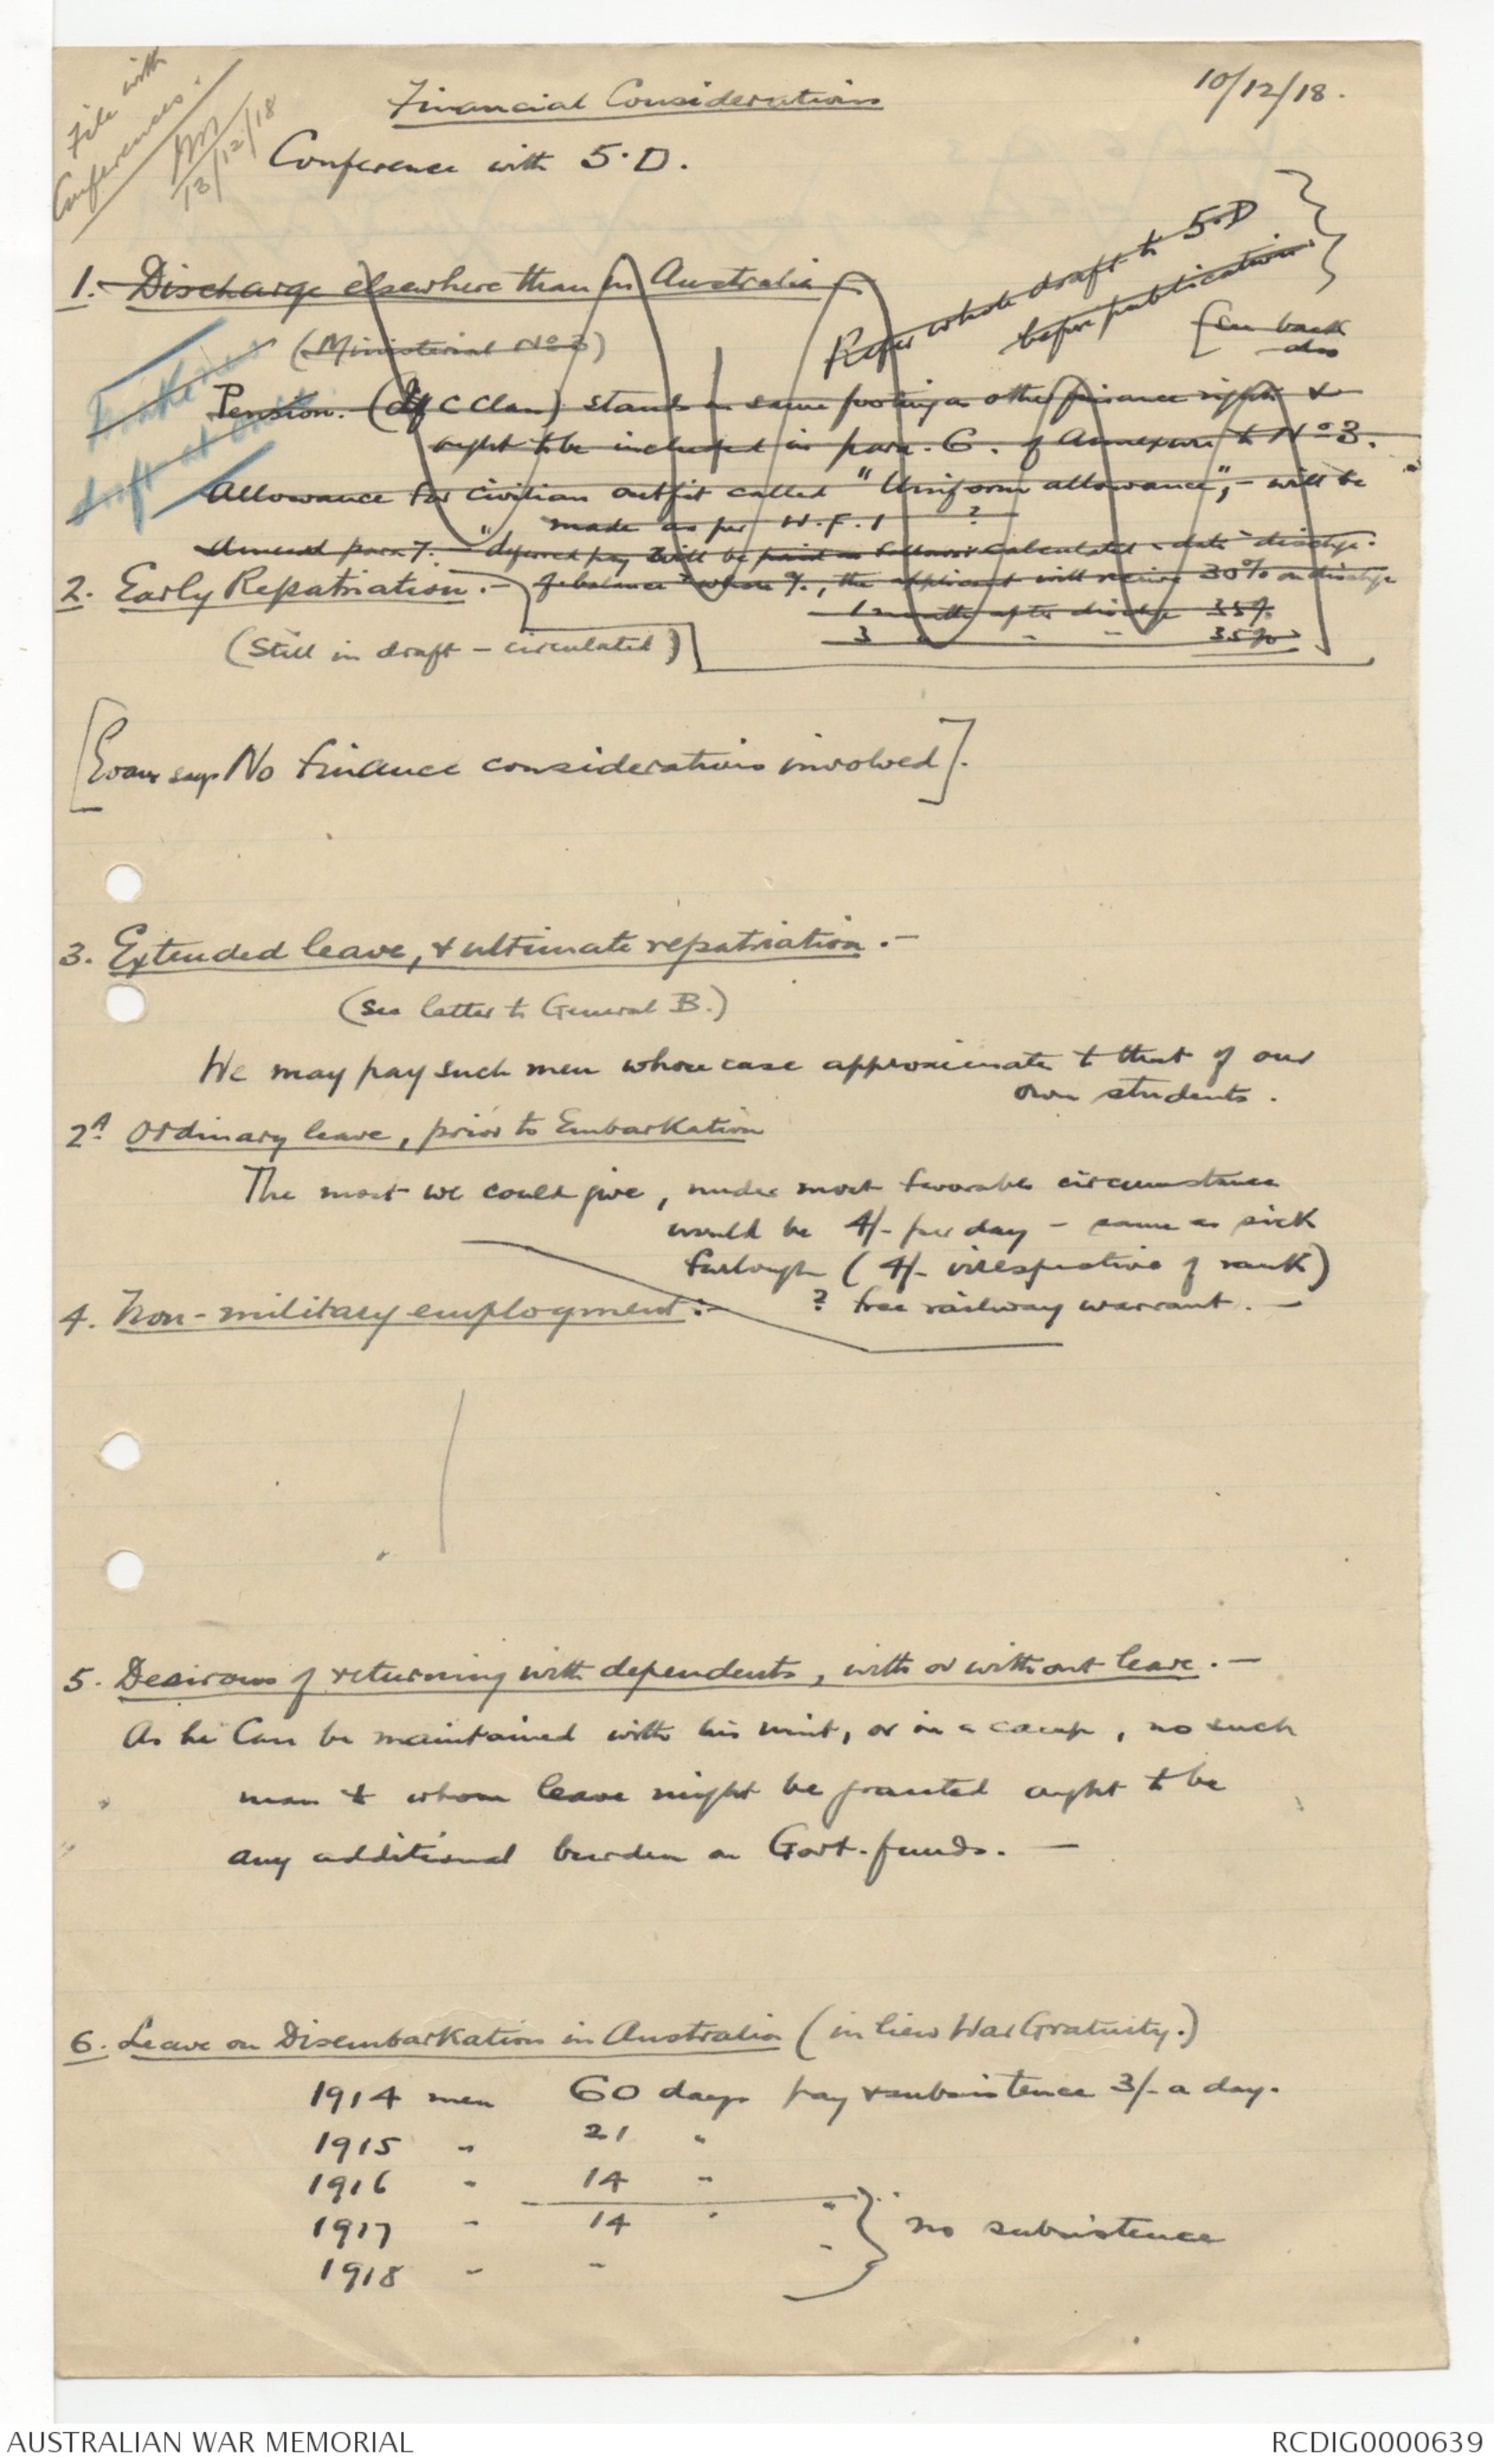 File with
Conferences.
JM
13/12/18
10/12/18.
Financial Considerations
Conference with 5.D.
Refer whole draft to 5.D
before publication.
1. Discharge elsewhere than in Australia
(Ministerial No 3)
(See back
also
Further
draft
Pension. (If C Class) stands on same footing as other finance rights &
ought to be included in para. 6. of Annexure to No 3.
Allowance for civilian outfit called "Uniform allowance", - will be
made as per W.F.1 ?
Amend para 7. "deferred pay will be paid as follows calculated to date of discharge.
2. Early Repatriation. -
of balance, the applicant will receive 30% on discharge
1 month after discharge 35%
3 " " " 35%
(Still in draft - circulated)
[Evans says No finance considerations involved].
3. Extended leave, & ultimate repatriation. -
(See letter to General B.)
We may pay such men whose case approximate to that of our
own students.
2A Ordinary leave, prior to Embarkation
The most we could give, under most favorable circumstances
would be 4/- per day - same as sick
furlough (4/- irrespective of rank)
? free railway warrant. -
4. Non-military employment. -
5. Desirous of returning with dependents, with or without leave. -
As he can be maintained with his unit, or in a camp, no such
man to whom leave might be granted ought to be
any additional burden on Govt. funds. -
6. Leave on Disembarkation in Australia (in lieu War Gratuity.)
1914 men 60 days pay & subsistence 3/- a day.
1915 " 21 "
1916 " 14 "
1917 " 14 " "
1918 " " "
} no subsistence
AUSTRALIAN WAR MEMORIAL
RCDIG0000639